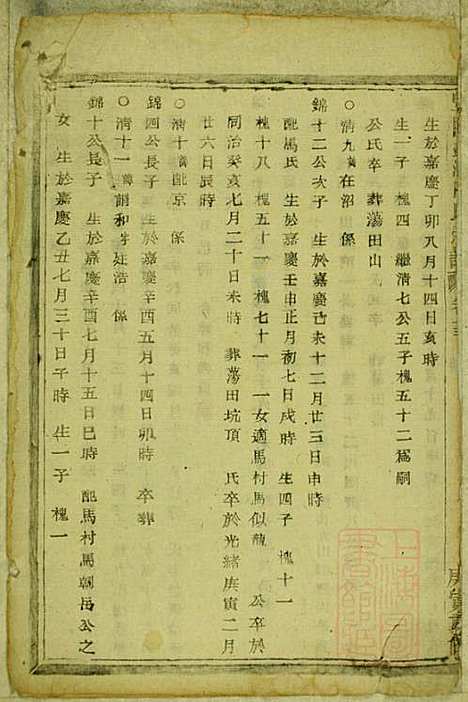 生於嘉慶丁卯八月十四日亥時
生一子 槐四 繼清七公五子槐五十二為嗣
公氏卒 葬蕩田山
○清九 在沼 係
錦十二公次子 生於嘉慶己未十二月廿三日申時
配馬氏 生於嘉慶壬申正月初七日戌時 生四子 槐十一
槐十八 槐五十一 槐七十一 一女適馬村馬似龍 公卒於
同治癸亥七月二十日未時 葬蕩田坑頂 氏卒於光緒庚寅二月
廿六日辰時
○清十 配京 係
錦四公長子 生於嘉慶辛酉五月十四日卯時 卒葬
○清十一 諱和 廷浩 係
錦十公長子 生於嘉慶辛酉七月十五日巳時 配馬村馬朝岳公之
女 生於嘉慶乙丑七月三十日子時 生一子 槐一